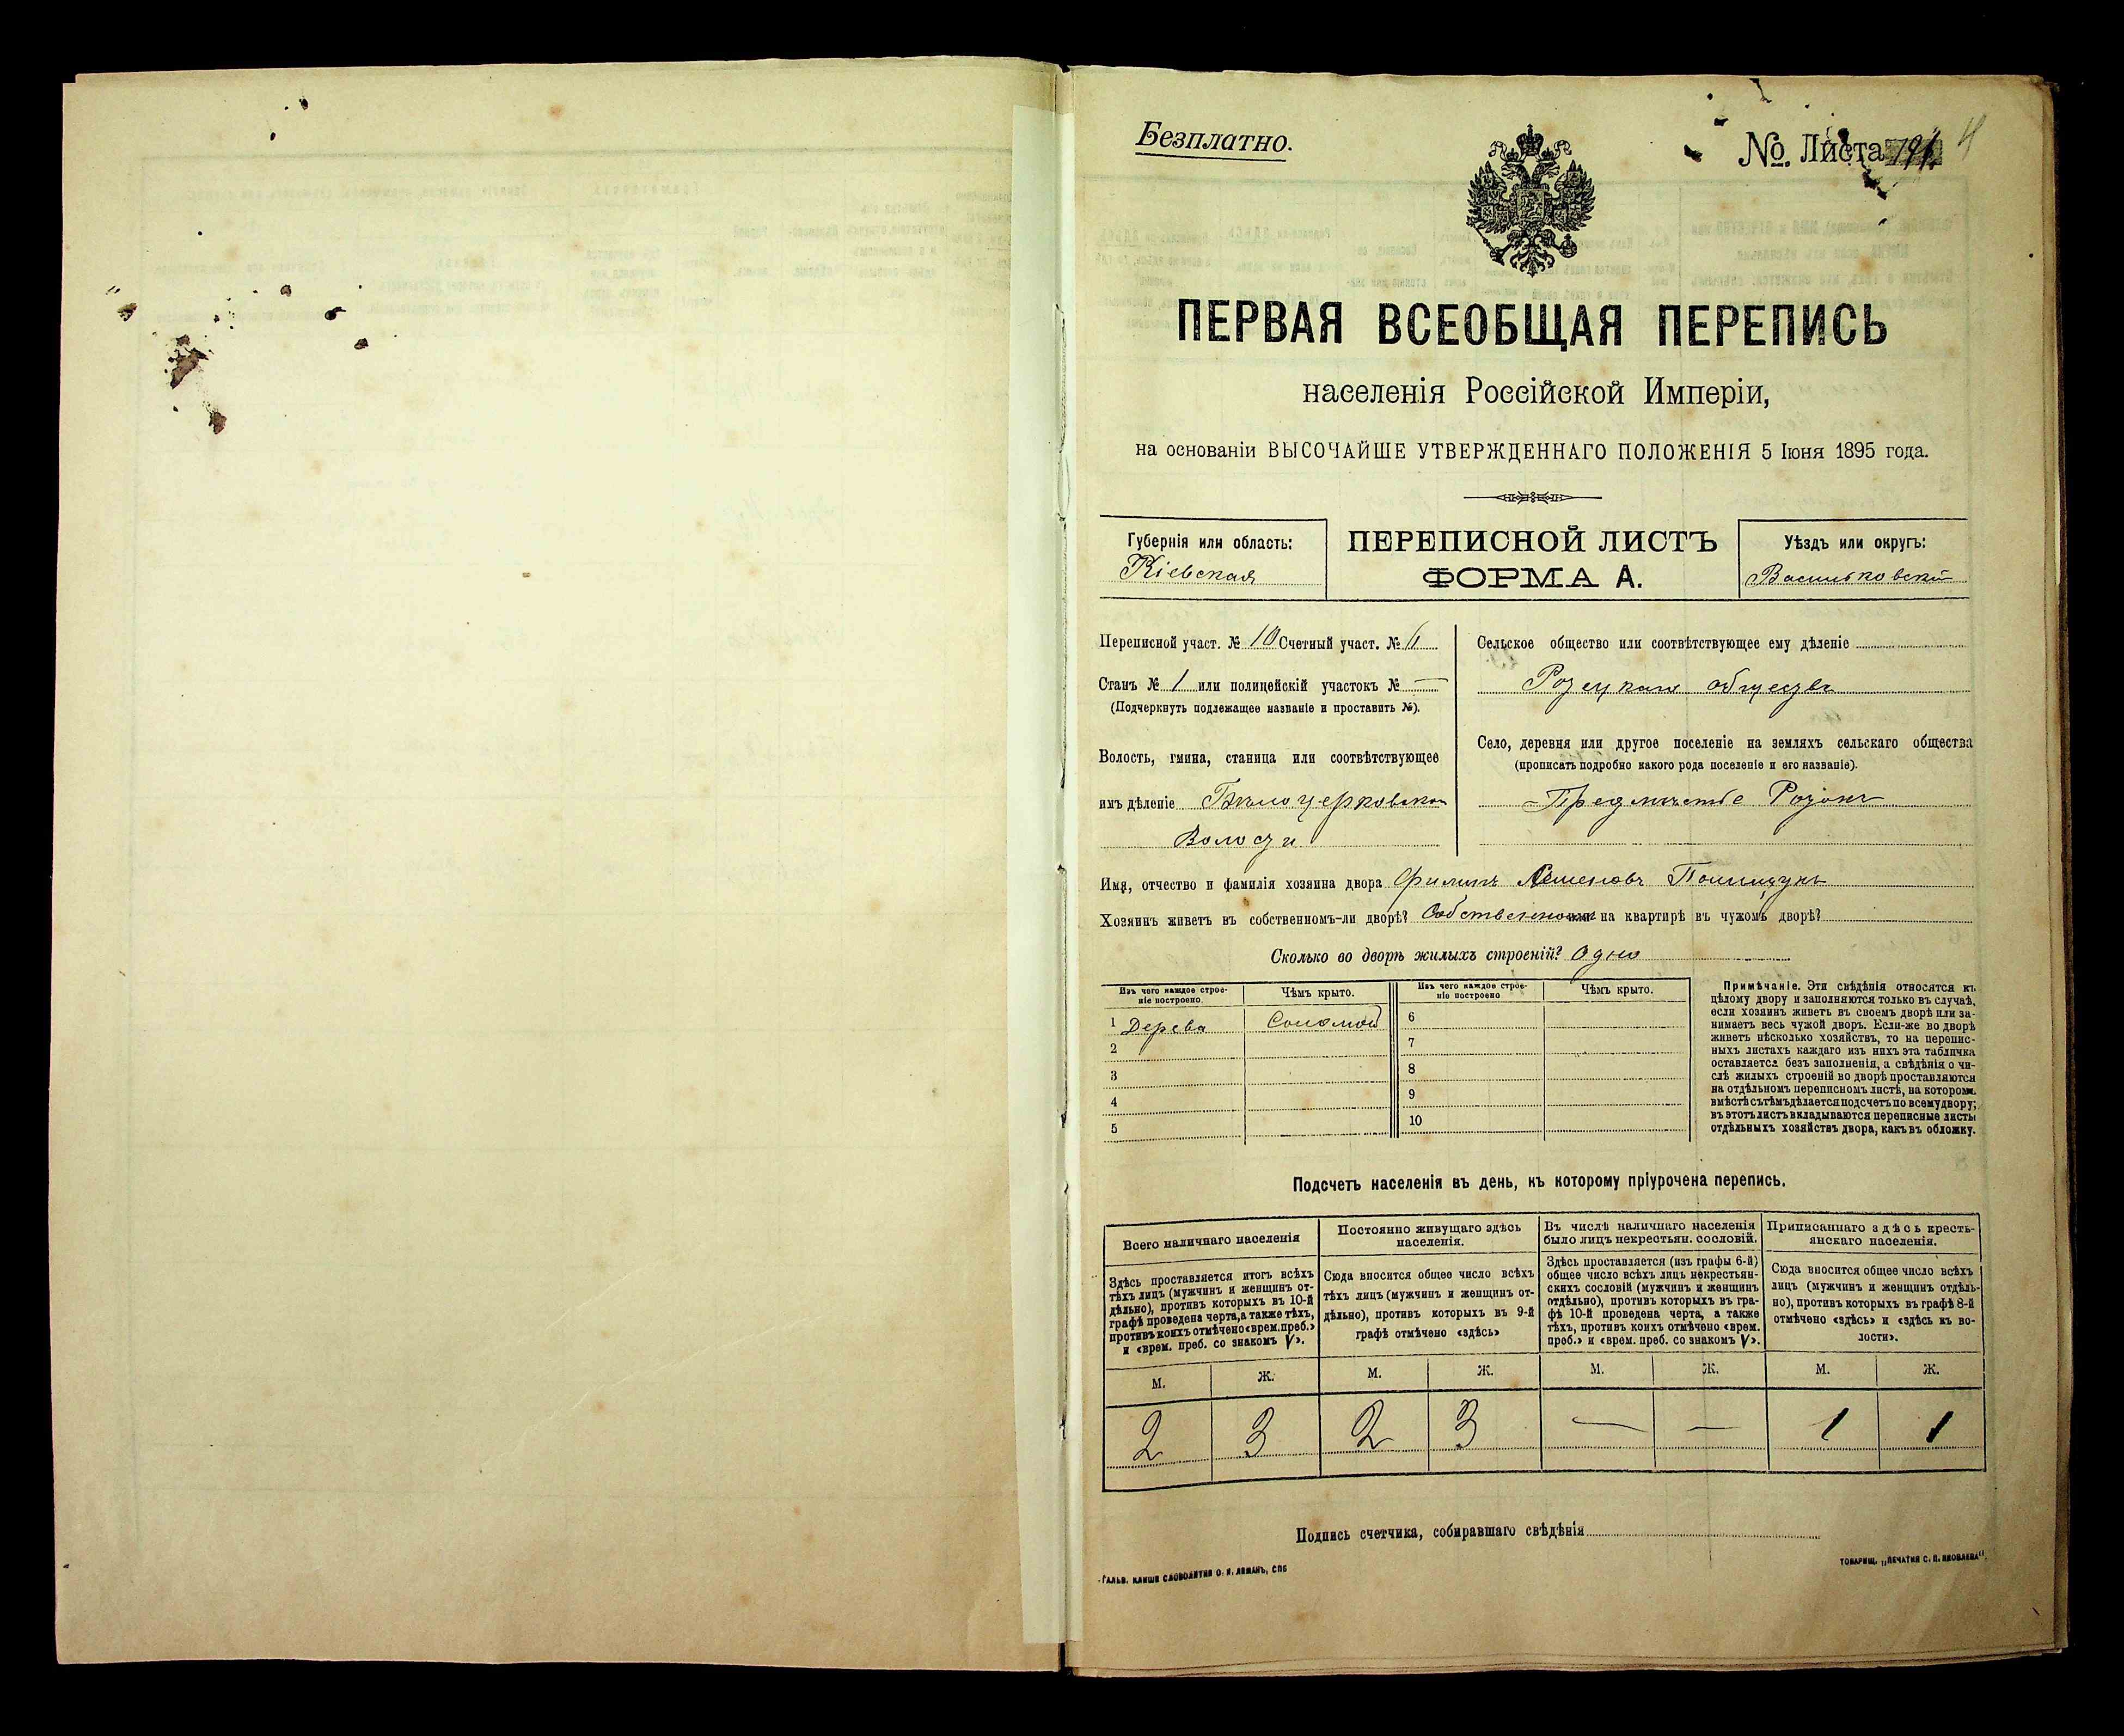 Безплатно.
№ Листа
ПЕРВАЯ ВСЕОБЩАЯ ПЕРЕПИСЬ
населенія Россійской Имперіи,
на основаніи ВЫСОЧАЙШЕ УТВЕРЖДЕННАГО ПОЛОЖЕНІЯ 5 Іюня 1895 года.
Губернія или область:
Кіевская
ПЕРЕПИСНОЙ ЛИСТЪ
ФОРМА А.
Уѣздъ или округъ:
Васильковскій
Переписной участ. № 10 Счетный участ. №
Станъ № 1 или полицейскій участокъ № —
(Подчеркнуть подлежащее названіе и проставить №).
Волость, гмина, станица или соотвѣтствующее
имъ дѣленіе Бѣлоцерковской
Волости
Сельское общество или соотвѣтствующее ему дѣленіе
Село, деревня или другое поселеніе на земляхъ сельскаго общества
(прописать подробно какого рода поселеніе и его названіе).
Предмѣстье
Имя, отчество и фамилія хозяина двора Филипъ Семеновъ
Хозяинъ живетъ въ собственномъ-ли дворѣ? Собственномъ или на квартирѣ въ чужомъ дворѣ?
Сколько во дворѣ жилыхъ строеній? Одно
Изъ чего каждое строе-
ніе построено.
Чѣмъ крыто.
Изъ чего каждое строе-
ніе построено
Чѣмъ крыто.
1 Дерева Соломой
2
3
4
5
6
7
8
9
10
Примѣчаніе. Эти свѣдѣнія относятся къ
цѣлому двору и заполняются только въ случаѣ,
если хозяинъ живетъ въ своемъ дворѣ или за-
нимаетъ весь чужой дворъ. Если-же во дворѣ
живетъ нѣсколько хозяйствъ, то на перепис-
ныхъ листахъ каждаго изъ нихъ эта табличка
оставляется безъ заполненія, а свѣдѣнія о чи-
слѣ жилыхъ строеній во дворѣ проставляются
на отдѣльномъ переписномъ листѣ, на которомъ
вмѣстѣ съ тѣмъ дѣлается подсчетъ по всему двору;
въ этотъ листъ вкладываются переписные листы
отдѣльныхъ хозяйствъ двора, какъ въ обложку.
Подсчетъ населенія въ день, къ которому пріурочена перепись.
Всего наличнаго населенія
Здѣсь проставляется итогъ всѣхъ
тѣхъ лицъ (мужчинъ и женщинъ от-
дѣльно), противъ которыхъ въ 10-й
графѣ проведена черта, а также тѣхъ,
противъ коихъ отмѣчено «врем. преб.»
и «врем. преб. со знакомъ V».
Постоянно живущаго здѣсь
населенія.
Сюда вносится общее число всѣхъ
тѣхъ лицъ (мужчинъ и женщинъ от-
дѣльно), противъ которыхъ въ 9-й
графѣ отмѣчено «здѣсь»
Въ числѣ наличнаго населенія
было лицъ некрестьян. сословій.
Здѣсь проставляется (изъ графы 6-й)
общее число всѣхъ лицъ некрестьян-
скихъ сословій (мужчинъ и женщинъ
отдѣльно), противъ которыхъ въ гра-
фѣ 10-й проведена черта, а также
тѣхъ, противъ коихъ отмѣчено «врем.
преб.» и «врем. преб. со знакомъ V».
Приписаннаго здѣсь кресть-
янскаго населенія.
Сюда вносится общее число всѣхъ
лицъ (мужчинъ и женщинъ отдѣль-
но), противъ которыхъ въ графѣ 8-й
отмѣчено «здѣсь» и «здѣсь къ во-
лости».
М. Ж. М. Ж. М. Ж. М. Ж.
2 3 2 3 — — 1 1
Подпись счетчика, собиравшаго свѣдѣнія
ГАЛЬВ. КЛИШЕ СЛОВОЛИТНИ О. И. ЛЕМАНЪ, СПБ
ТОВАРИЩ. „ПЕЧАТНЯ С. П. ЯКОВЛЕВА".